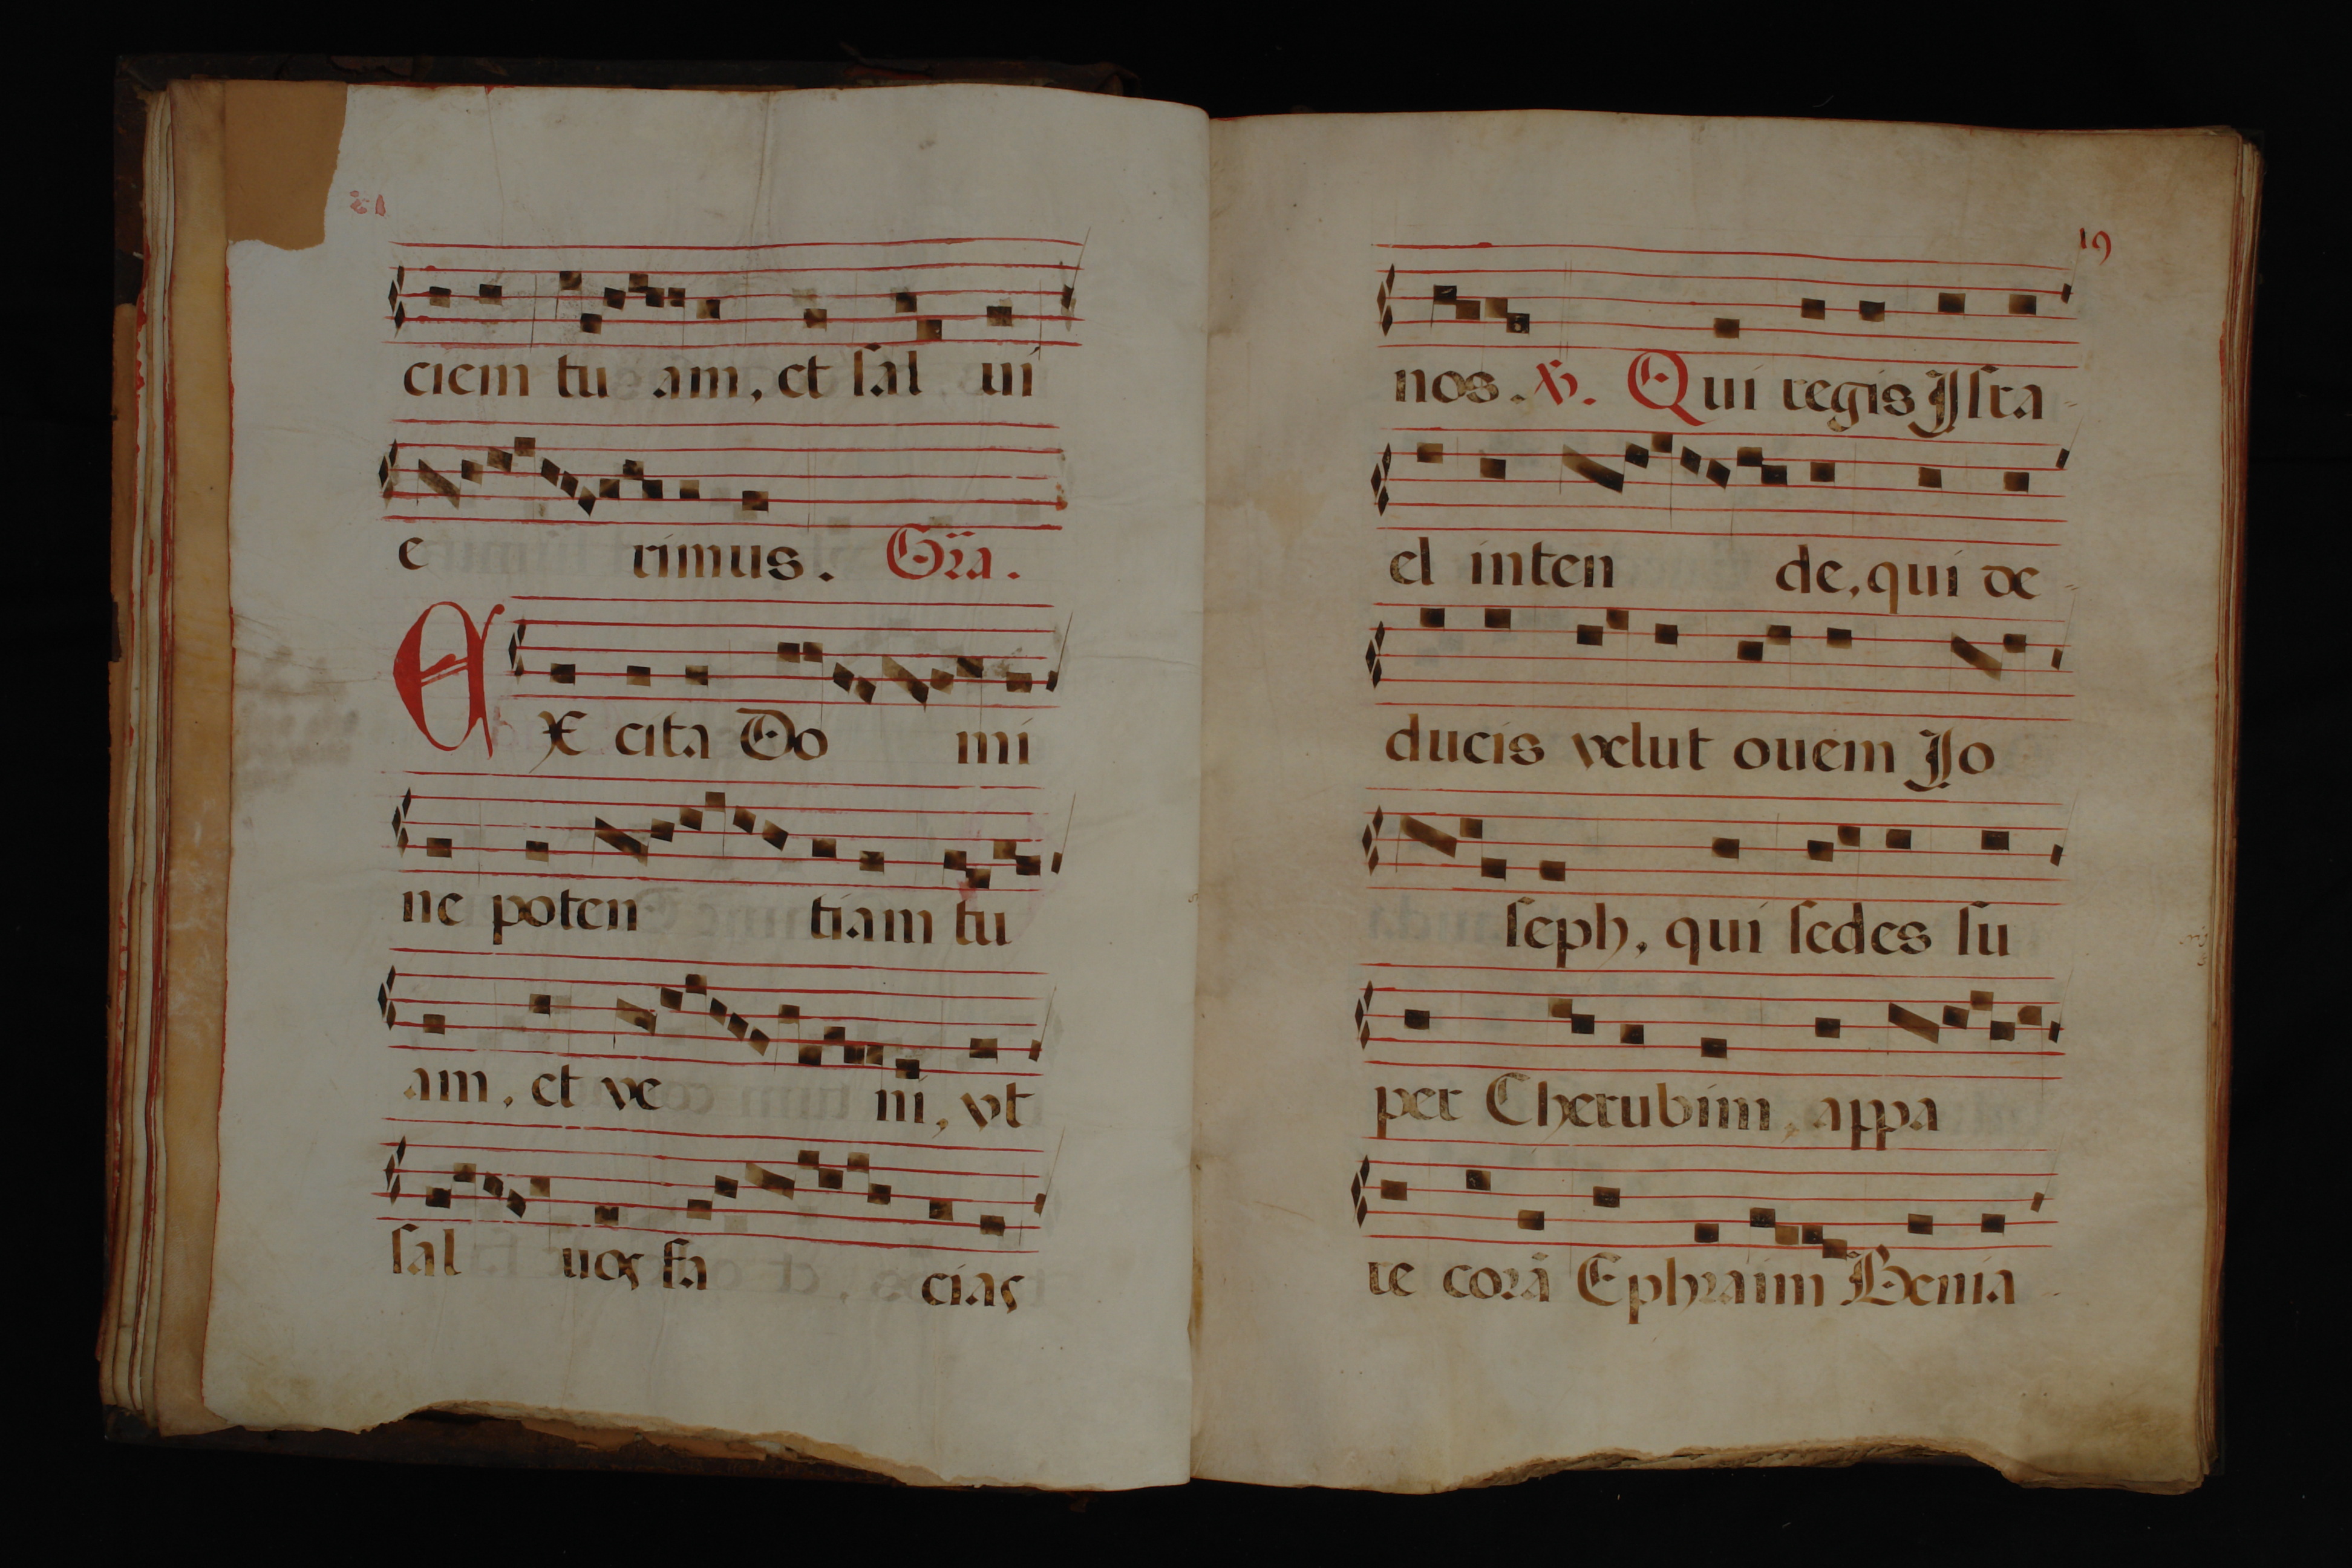 ciem tu am, et sal ui
e rimus. Gr̃a.
Ex cita Do mi
ne poten tiam tu
am, et ve ni, vt
sal uos fa cias
19
nos. ℣. Qui regis Isra-
el inten de, qui de-
ducis velut ouem Jo
seph, qui sedes su
per Cherubim, appa
re corã Ephraim Benia-